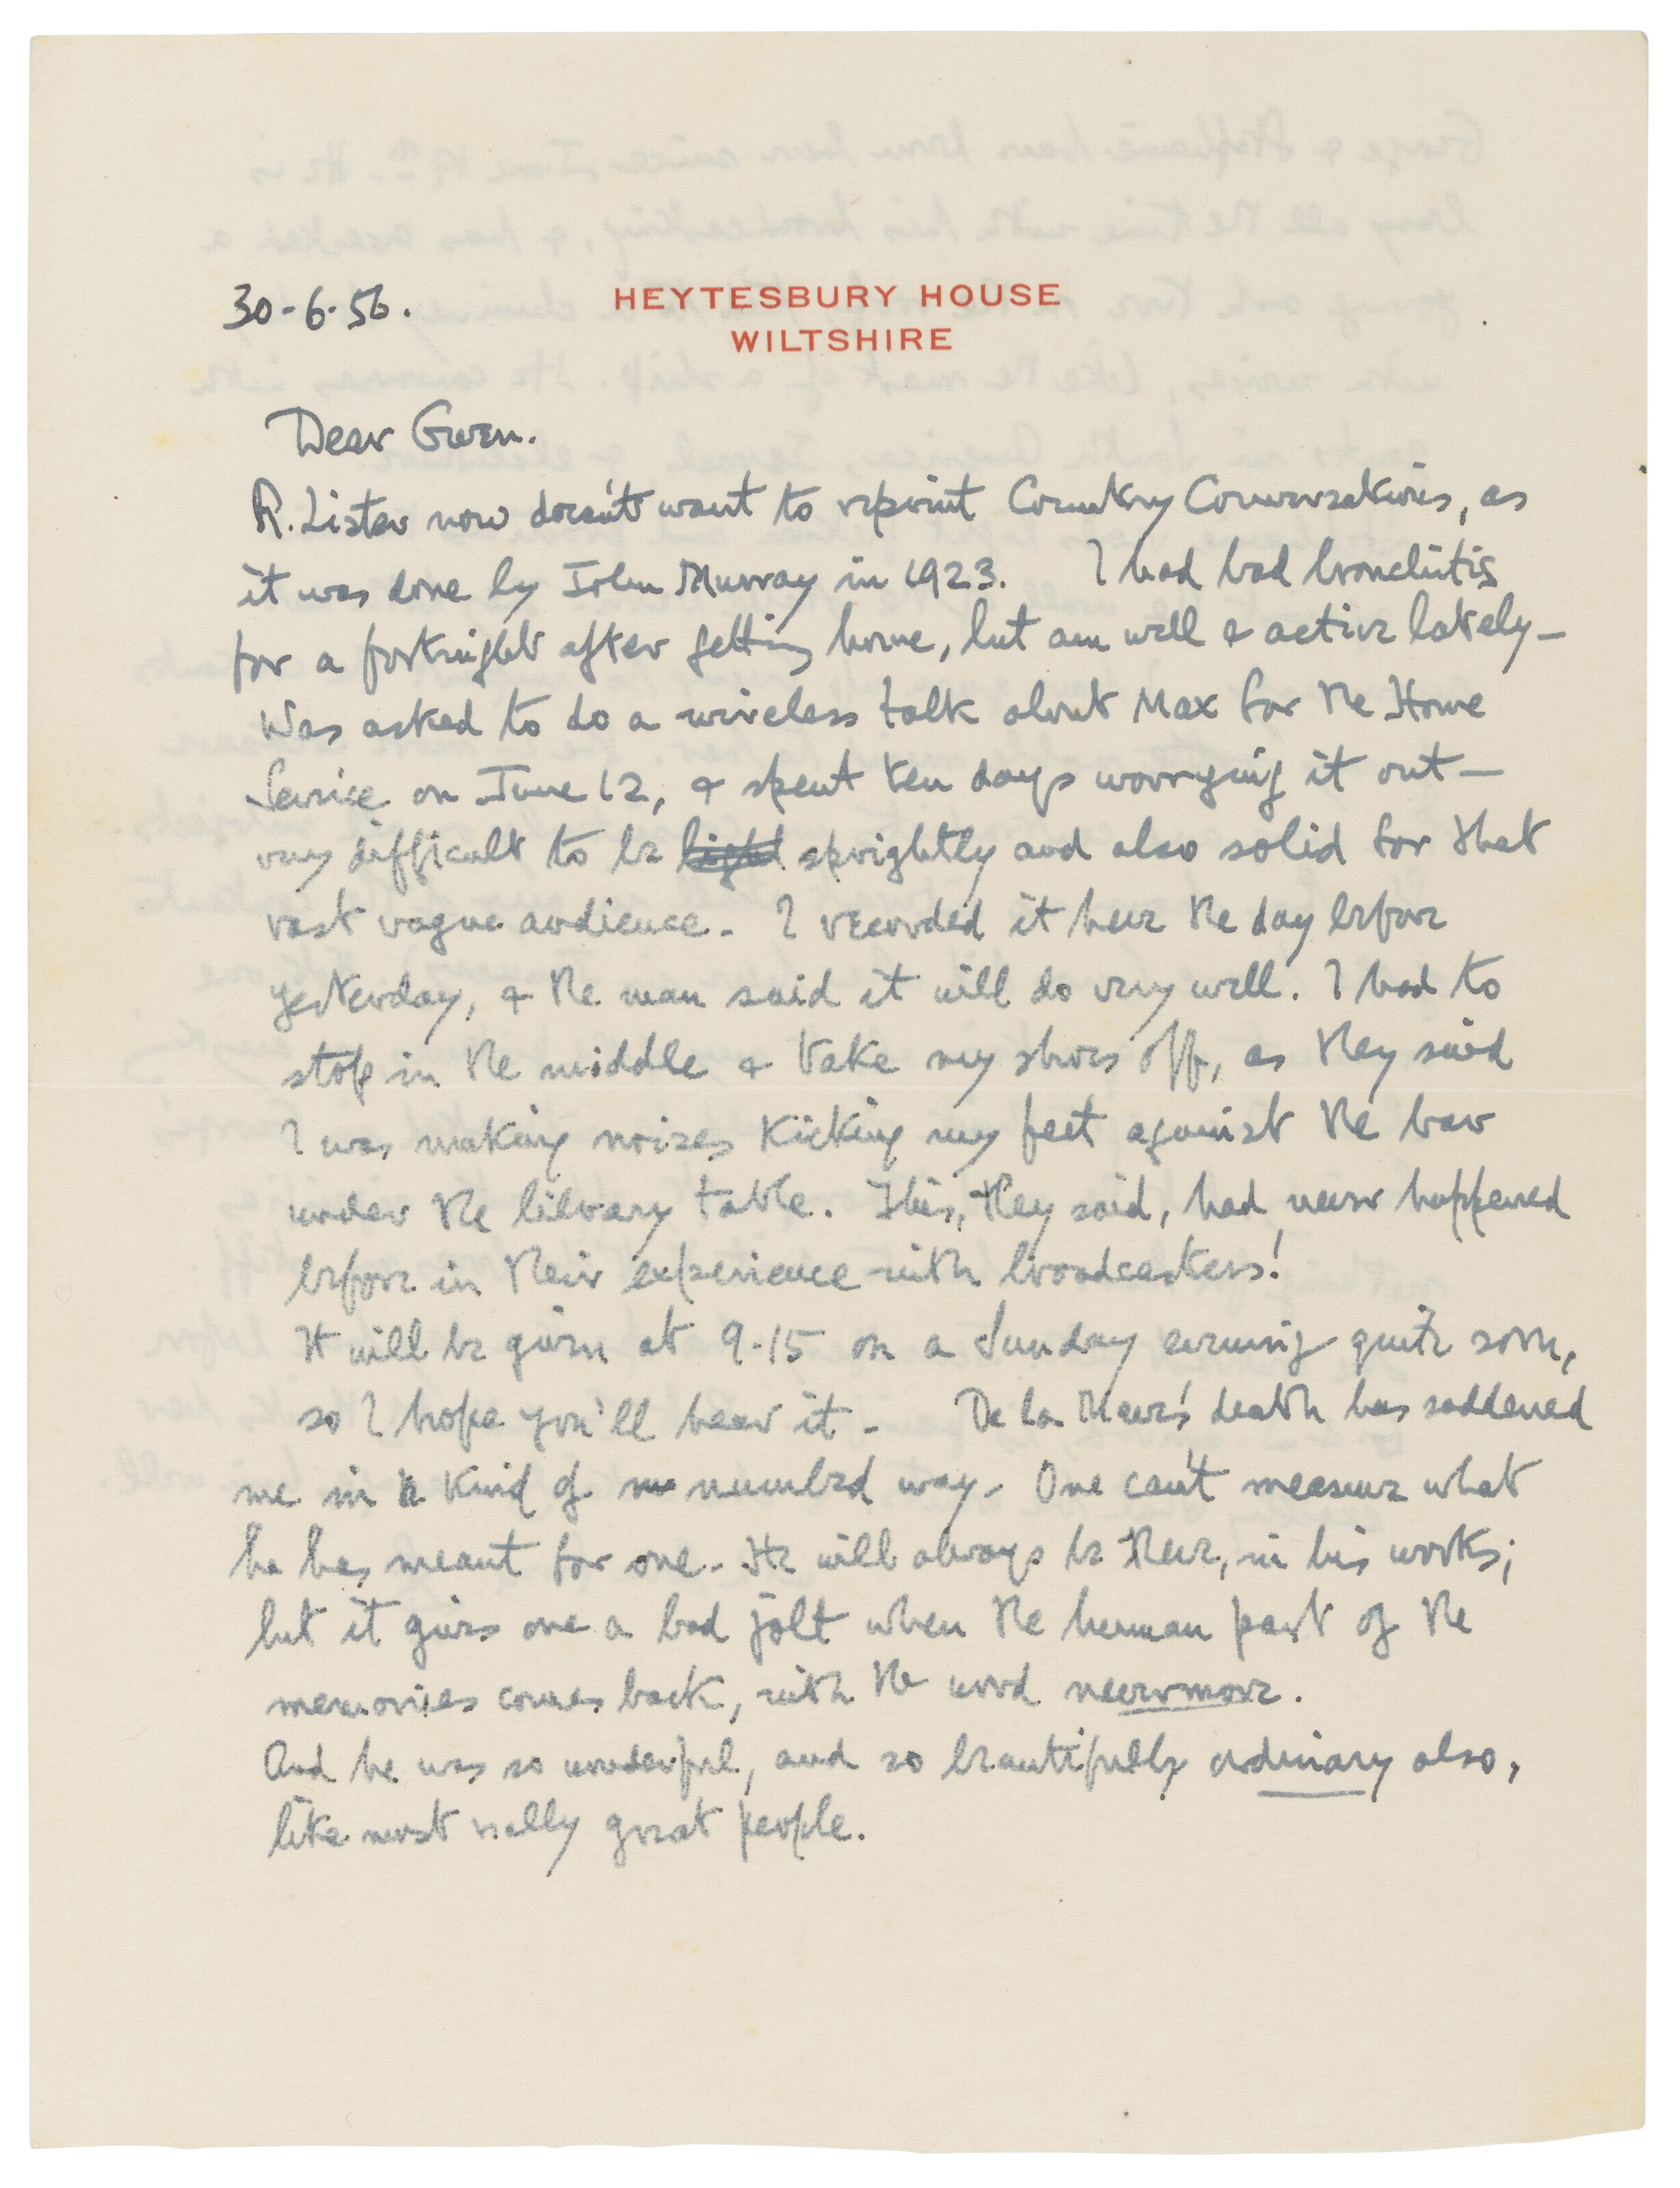 30-6-56.
HEYTESBURY HOUSE
WILTSHIRE
Dear Gwen.
R. Lister now doesn't want to reprint Country Conversations, as
it was done by John Murray in 1923. I had bad bronchitis
for a fortnight after getting home, but am well & active lately—
Was asked to do a wireless talk about Max for the Home
Service on June 12, & spent ten days worrying it out—
very difficult to be light sprightly and also solid for that
vast vague audience. I recorded it here the day before
yesterday, & the man said it will do very well. I had to
stop in the middle & take my shoes off, as they said
I was making noises kicking my feet against the bar
under the library table. This, they said, had never happened
before in their experience with broadcasters!
It will be given at 9-15 on a Sunday evening quite soon,
so I hope you'll hear it - De la Mare's death has saddened
me in a kind of numbed way. One can't measure what
he has meant for one. He will always be there, in his works;
but it gives one a bad jolt when the human part of the
memories comes back, with the word nevermore.
And he was so wonderful, and so beautifully ordinary also,
like most really great people.